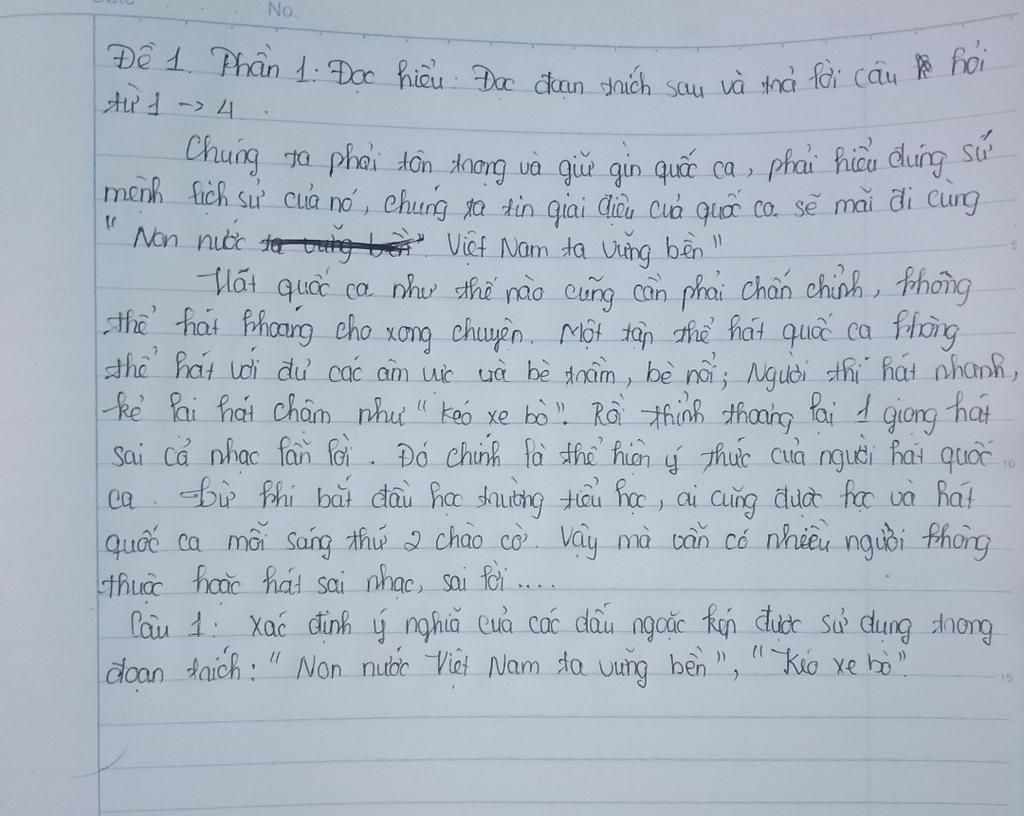 No.
Đề 1. Phần 1: Đọc hiểu: Đọc đoạn trích sau và trả lời câu hỏi
từ 1 -> 4.
Chúng ta phải tôn trọng và giữ gìn quốc ca, phải hiểu đúng sứ
mệnh lịch sử của nó, chúng ta tin giai điệu của quốc ca sẽ mãi đi cùng
"Non nước Việt Nam ta vững bền"
Hát quốc ca như thế nào cũng cần phải chấn chỉnh, không
thể hát khoáng cho xong chuyện. Một tập thể hát quốc ca không
thể hát với đủ các âm vực và bè trầm, bè nổi; Người thì hát nhanh,
kẻ lại hát chậm như "kéo xe bò". Rồi thỉnh thoảng lại 1 giọng hát
sai cả nhạc lẫn lời. Đó chính là thể hiện ý thức của người hát quốc
ca. Từ khi bắt đầu học trường tiểu học, ai cũng được học và hát
quốc ca mỗi sáng thứ 2 chào cờ. Vậy mà vẫn có nhiều người không
thuộc hoặc hát sai nhạc, sai lời....
Câu 1: Xác định ý nghĩa của các dấu ngoặc kép được sử dụng trong
đoạn trích: "Non nước Việt Nam ta vững bền", "Kéo xe bò".
5
10
15